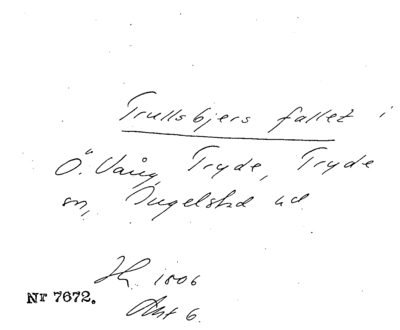 Trullsbjers fallet i
Ö. Vång, Tryde, Tryde
sn, Ingelstad hd
1806
Akt 6.
Nr 7672.